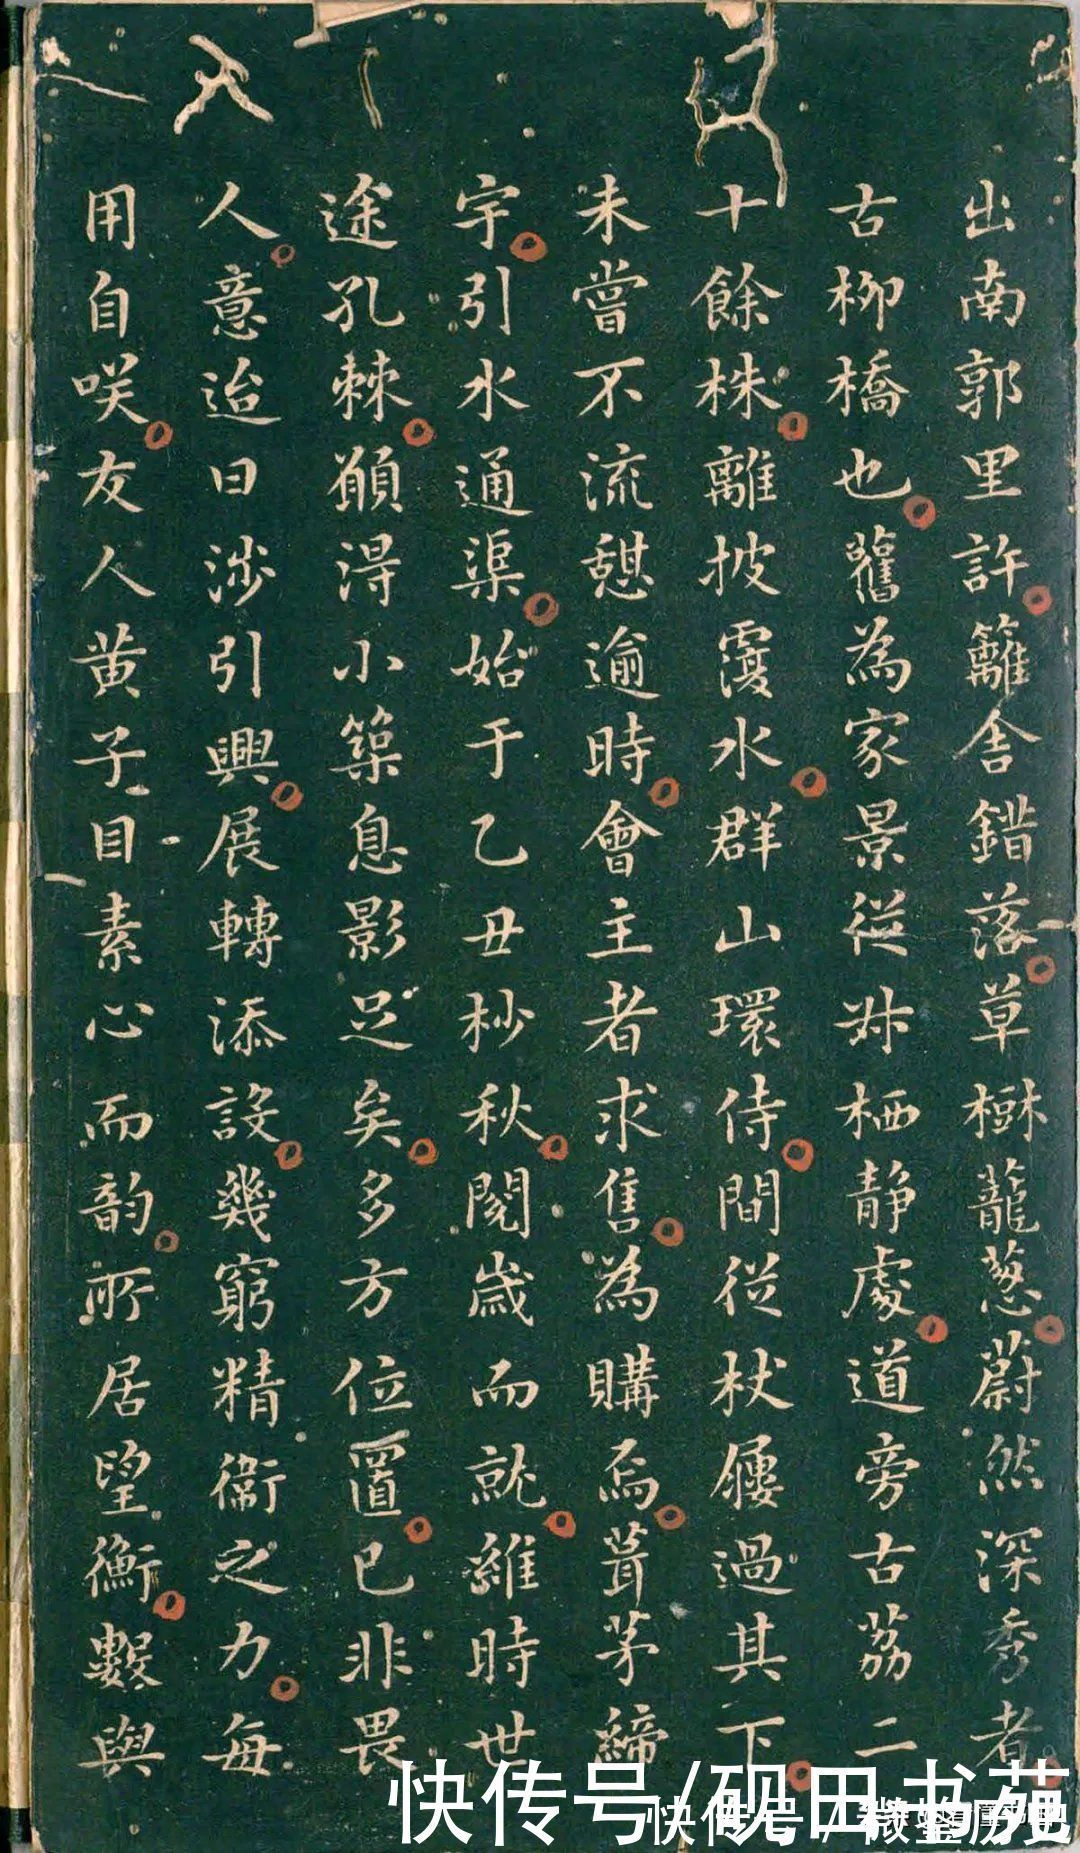 出南郭里許籬舍錯落草樹蘢蔥蔚然深秀者
古柳橋也舊為家景從叔栖靜處道旁古荔二
十餘株離披覆水群山環侍間從杖屨過其下
未嘗不流憩逾時會主者求售為購焉葺茅締
宇引水通渠始于乙丑杪秋閱歲而就維時世
途孔棘願得小築息影足矣多方位置已非畏
人意迨日涉引興展轉添設幾窮精衛之力每
用自咲友人黃子目素心而韵所居望衡數與
快传号/砚田书苑
快传号 /